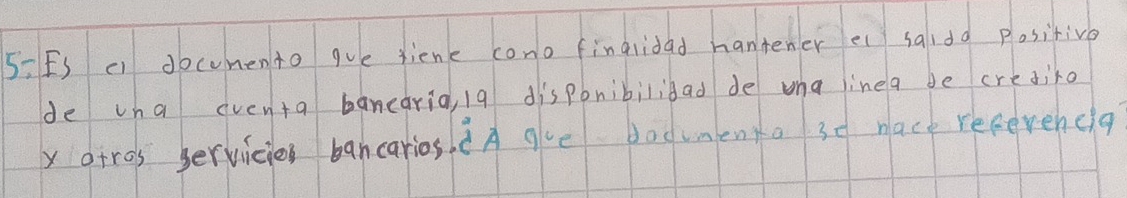 5- Es el documento que tiene como finalidad mantener el saldo positivo
de una cuenta bancaria, la disponibilidad de una linea de credito
y otros servicios bancarios. ¿A que documento se hace referencia?